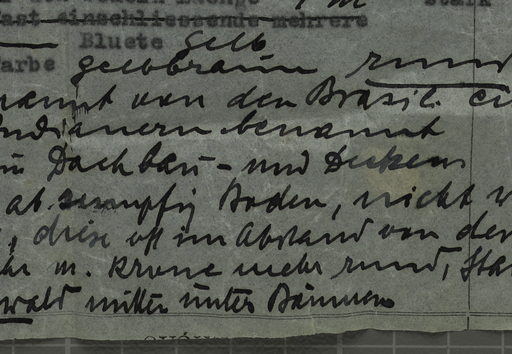 stark
fast einschliessende mehrere
Bluete gelb
arbe gelbbraun rund
nannt von den Brasil.
Indianern benannt
Dachbau - und Decken
ab. sumpfig Boden, nicht
, diese oft im Abstand von der
m. Krone mehr rund,
wald mitten unter Bäumen